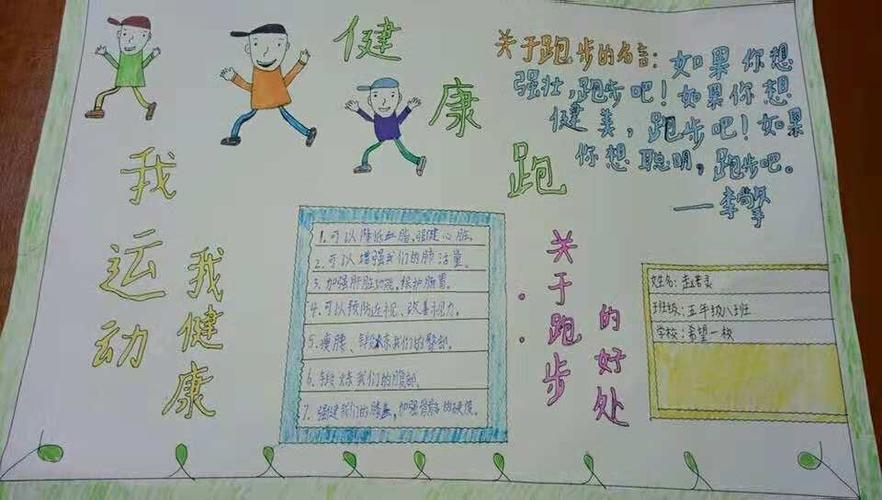 健
康
跑
关于跑步的名言：如果你想
强壮，跑步吧！如果你想
健美，跑步吧！如果
你想聪明，跑步吧。
我
运
动
我
健
康
1.可以降低血脂、强健心脏。
2.可以增强我们的肺活量。
3.加强肝脏功能，保护肠胃。
4.可以预防近视、改善视力。
5.瘦腰、锻炼我们的臀部。
6.锻炼我们的腹部。
7.强健我们的膝盖，加强骨骼的硬度。
关于跑步
的好处
姓名：
班级：五年级八班
学校：希望一校